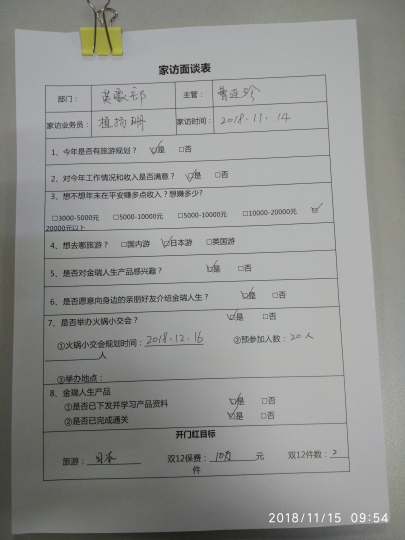 家访面谈表
部门： 英豪部 主管：
家访业务员： 家访时间： 2018.11.14
1、今年是否有旅游规划？ ☑是 □否
2、对今年工作情况和收入是否满意？ ☑是 □否
3、想不想年末在平安赚多点收入？想赚多少?
□3000-5000元 □5000-10000元 □5000-10000元 □10000-20000元 ☑
20000元以上
4、想去哪旅游？ □国内游 ☑日本游 □英国游
5、是否对金瑞人生产品感兴趣？ ☑是 □否
6、是否愿意向身边的亲朋好友介绍金瑞人生？ ☑是 □否
7、是否举办火锅小交会？ ☑是 □否
①火锅小交会规划时间：2018.12.16 ②预参加人数：20人
人
③举办地点：
8、金瑞人生产品
①是否已下发并学习产品资料 ☑是 □否
②是否已完成通关 ☑是 □否
开门红目标
旅游： 日本 双12保费： 10万 元 双12件数：2
件
2018/11/15 09:54